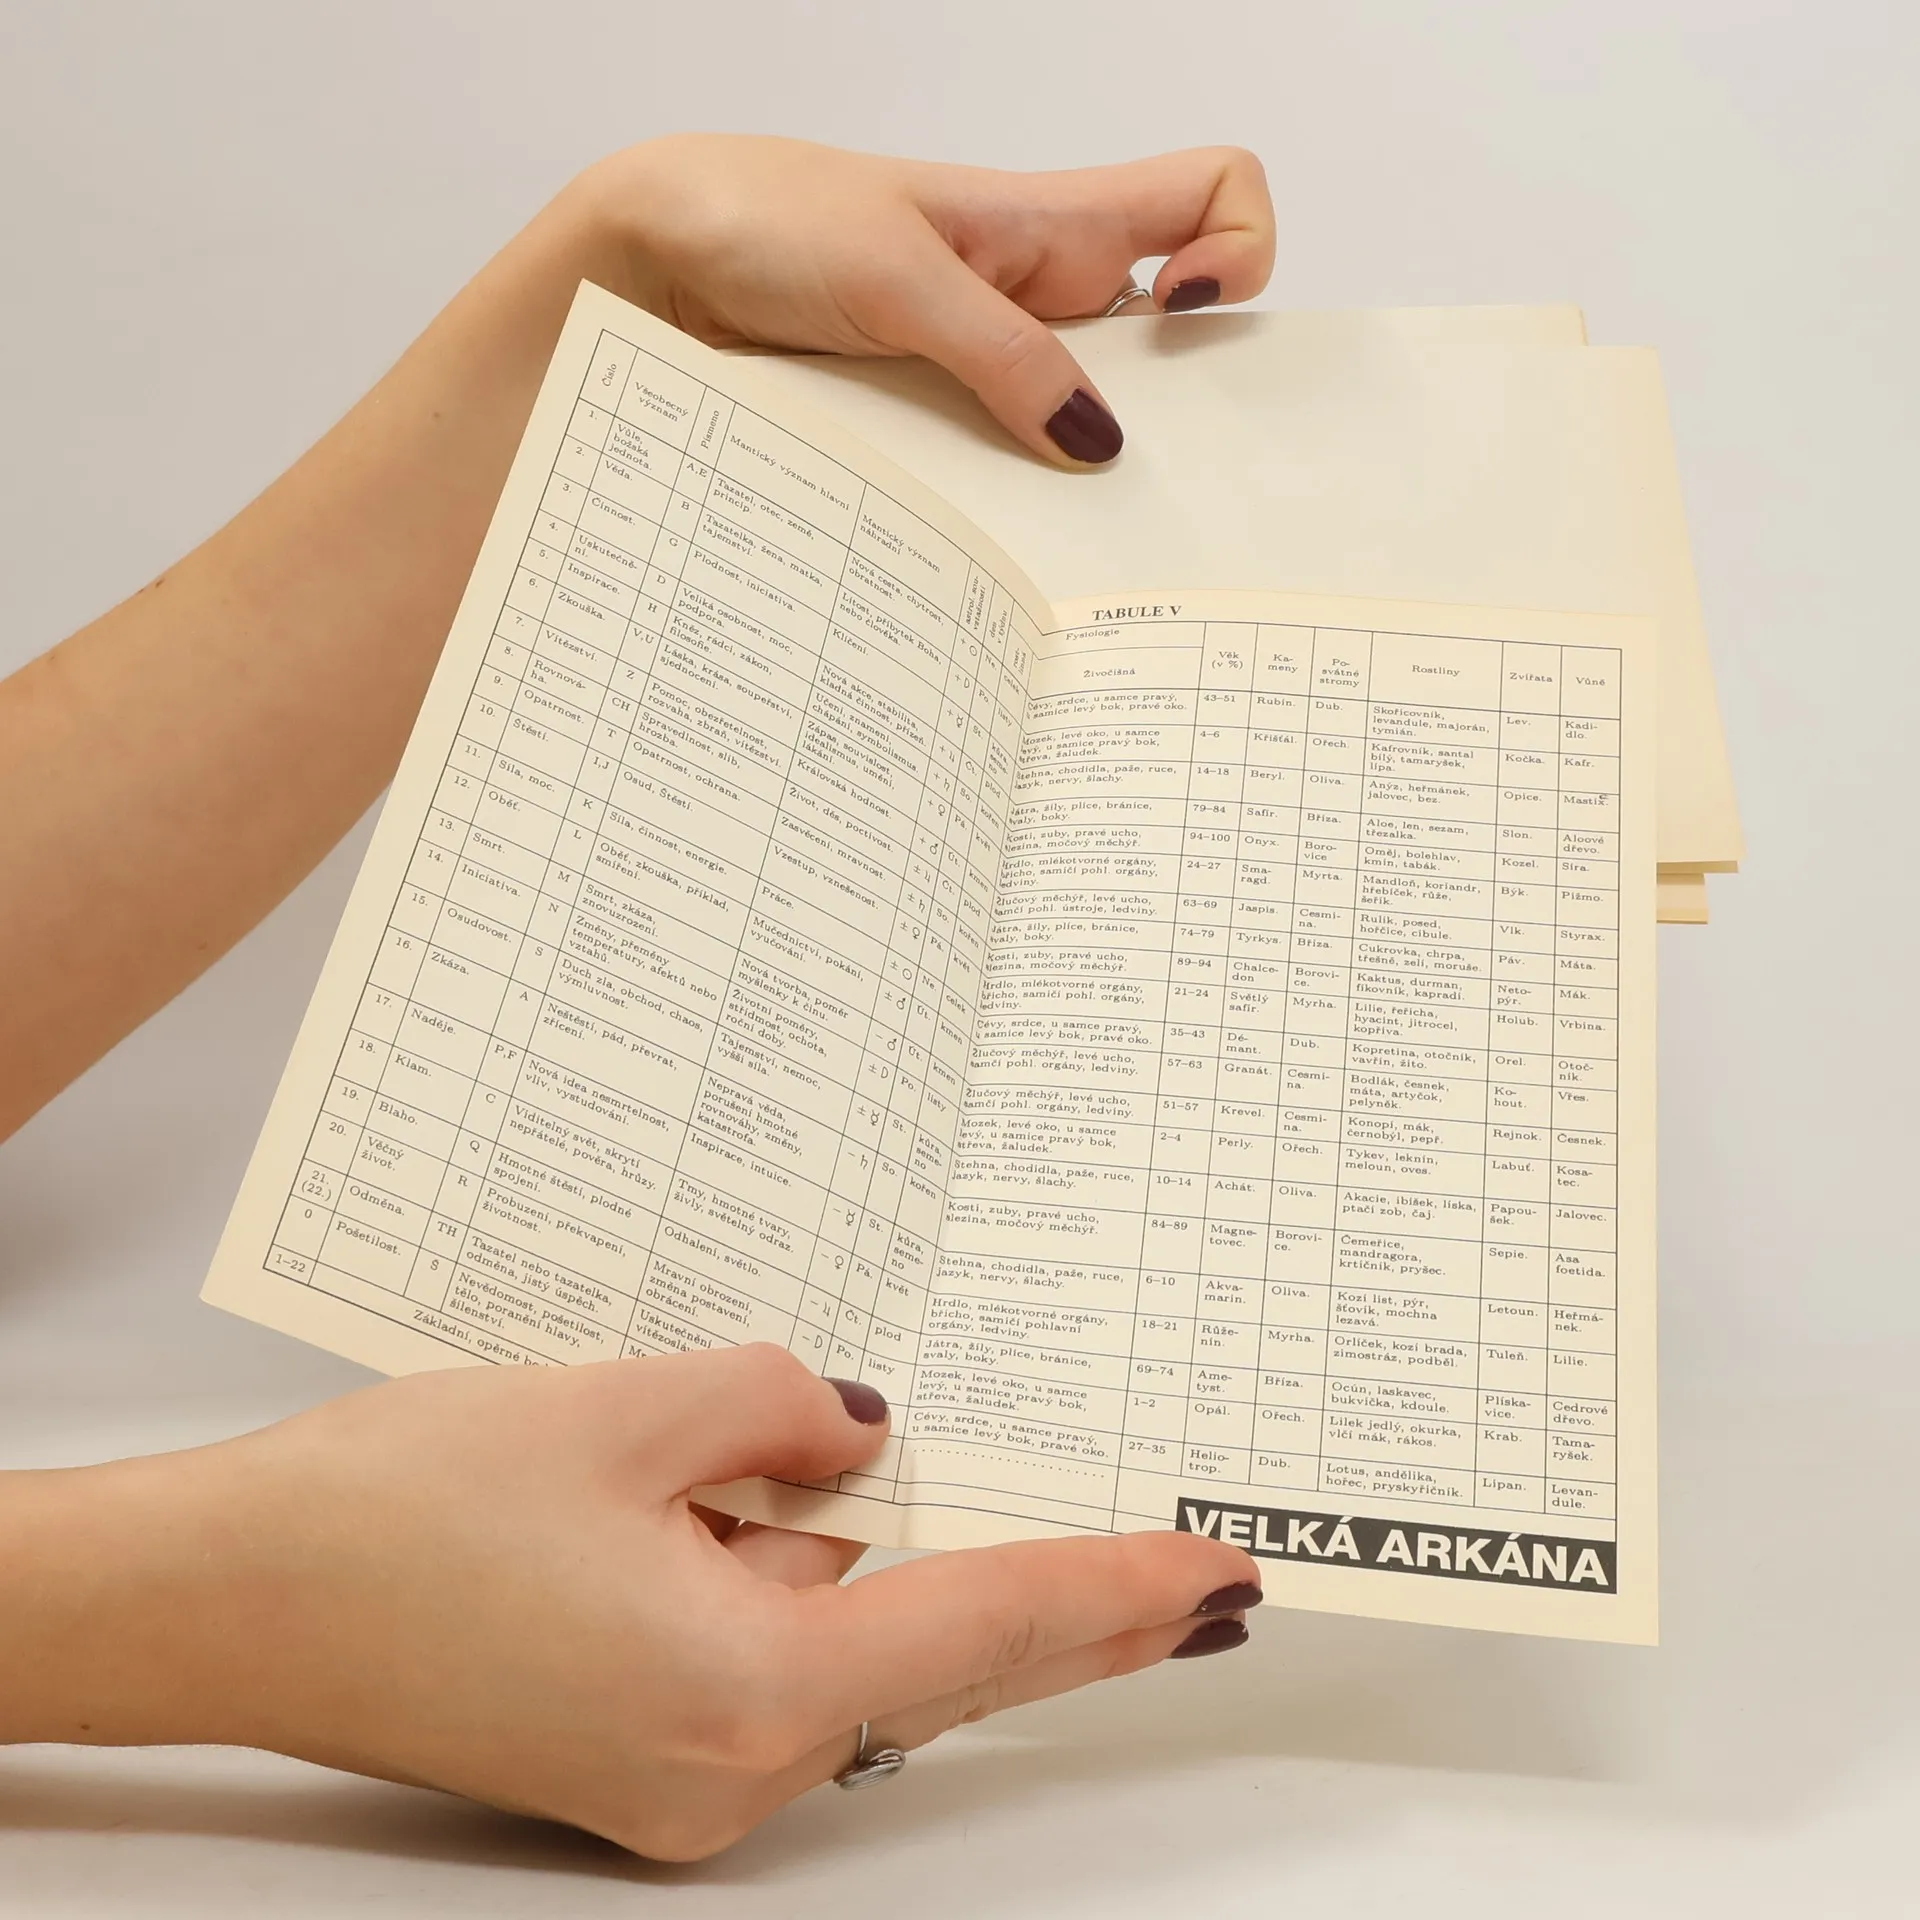 Číslo
Všeobecný
význam
Písmeno
Mantický význam hlavní
Mantický význam
náhradní
astrol. sou-
vztažnosti
den
v týdnu
1.
Vůle,
božská
jednota.
A,E
Tazatel, otec, země,
princip.
Nová cesta, chytrost,
obratnost.
+ ☉
Ne.
celek
2.
Věda.
B
Tazatelka, žena, matka,
tajemství.
Lítost, příbytek Boha,
nebo člověka.
+ D
Po.
listy
3.
Činnost.
G
Plodnost, iniciativa.
Klíčení.
+ ☿
St.
kůra,
seme-
no
4.
Uskutečně-
ní.
D
Veliká osobnost, moc,
podpora.
Nová akce, stabilita,
kladná činnost, přízeň.
+ ♃
Čt.
plod
5.
Inspirace.
H
Kněz, rádci, zákon,
filosofie.
Učení, znamení,
chápání, symbolismus.
+ ♄
So.
kořen
6.
Zkouška.
V,U
Láska, krása, soupeřství,
sjednocení.
Zápas, souvislost,
idealismus, umění,
lákání.
+ ♀
Pá.
květ
7.
Vítězství.
Z
Pomoc, obezřetelnost,
rozvaha, zbraň, vítězství.
Královská hodnost.
+ ♂
Út.
kmen
8.
Rovnová-
ha.
CH
Spravedlnost, slib,
hrozba.
Život, děs, poctivost.
± ♃
Čt.
plod
9.
Opatrnost.
T
Opatrnost, ochrana.
Zasvěcení, mravnost.
± ♄
So.
kořen
10.
Štěstí.
I,J
Osud, Štěstí.
Vzestup, vznešenost.
± ♀
Pá.
květ
11.
Síla, moc.
K
Síla, činnost, energie.
Práce.
± ☉
Ne.
celek
12.
Oběť.
L
Oběť, zkouška, příklad,
smíření.
Mučednictví, pokání,
vyučování.
± ♂
Út.
kmen
13.
Smrt.
M
Smrt, zkáza,
znovuzrození.
Nová tvorba, poměr
myšlenky k činu.
− ♂
Út.
kmen
14.
Iniciativa.
N
Změny, přeměny
temperatury, afektů nebo
vztahů.
Životní poměry,
střídmost, ochota,
roční doby.
± D
Po.
listy
15.
Osudovost.
S
Duch zla, obchod, chaos,
výmluvnost.
Tajemství, nemoc,
vyšší síla.
± ☿
St.
kůra,
seme-
no
16.
Zkáza.
A
Neštěstí, pád, převrat,
zřícení.
Nepravá věda,
porušení hmotné
rovnováhy, změny,
katastrofa.
− ♄
So.
kořen
17.
Naděje.
P,F
Nová idea nesmrtelnost,
vliv, vystudování.
Inspirace, intuice.
− ☿
St.
kůra,
seme-
no
18.
Klam.
C
Viditelný svět, skrytí
nepřátelé, pověra, hrůzy.
Tmy, hmotné tvary,
živly, světelný odraz.
− ♀
Pá.
květ
19.
Blaho.
Q
Hmotné štěstí, plodné
spojení.
Odhalení, světlo.
− ♃
Čt.
plod
20.
Věčný
život.
R
Probuzení, překvapení,
životnost.
Mravní obrození,
změna postavení,
obrácení.
− D
Po.
listy
21.
(22.)
Odměna.
TH
Tazatel nebo tazatelka,
odměna, jistý úspěch.
Uskutečnění
0
Pošetilost.
Š
Nevědomost, pošetilost,
tělo, poranění hlavy,
šílenství.
1–22
Základní, opěrné
TABULE V
Fysiologie
Živočišná
Věk
(v %)
Ka-
meny
Po-
svátné
stromy
Rostliny
Zvířata
Vůně
Cévy, srdce, u samce pravý,
u samice levý bok, pravé oko.
43–51
Rubín.
Dub.
Skořicovník,
levandule, majorán,
tymián.
Lev.
Kadi-
dlo.
Mozek, levé oko, u samce
levý, u samice pravý bok,
střeva, žaludek.
4–6
Křišťál.
Ořech.
Kafrovník, santal
bílý, tamaryšek,
lípa.
Kočka.
Kafr.
Stehna, chodidla, paže, ruce,
jazyk, nervy, šlachy.
14–18
Beryl.
Oliva.
Anýz, heřmánek,
jalovec, bez.
Opice.
Mastix.
Játra, žíly, plíce, bránice,
svaly, boky.
79–84
Safír.
Bříza.
Aloe, len, sezam,
třezalka.
Slon.
Aloové
dřevo.
Kosti, zuby, pravé ucho,
slezina, močový měchýř.
94–100
Onyx.
Boro-
vice
Oměj, bolehlav,
kmín, tabák.
Kozel.
Síra.
Hrdlo, mlékotvorné orgány,
břicho, samičí pohl. orgány,
ledviny.
24–27
Sma-
ragd.
Myrta.
Mandloň, koriandr,
hřebíček, růže,
šeřík.
Býk.
Pižmo.
Žlučový měchýř, levé ucho,
samčí pohl. ústroje, ledviny.
63–69
Jaspis.
Cesmí-
na.
Rulík, posed,
hořčice, cibule.
Vlk.
Styrax.
Játra, žíly, plíce, bránice,
svaly, boky.
74–79
Tyrkys.
Bříza.
Cukrovka, chrpa,
třešně, zelí, moruše.
Páv.
Máta.
Kosti, zuby, pravé ucho,
slezina, močový měchýř.
89–94
Chalce-
don
Borovi-
ce.
Kaktus, durman,
fíkovník, kapradí.
Neto-
pýr.
Mák.
Hrdlo, mlékotvorné orgány,
břicho, samičí pohl. orgány,
ledviny.
21–24
Světlý
safír.
Myrha.
Lilie, řeřicha,
hyacint, jitrocel,
kopřiva.
Holub.
Vrbina.
Cévy, srdce, u samce pravý,
u samice levý bok, pravé oko.
35–43
Dé-
mant.
Dub.
Kopretina, otočník,
vavřín, žito.
Orel.
Otoč-
ník.
Žlučový měchýř, levé ucho,
samčí pohl. orgány, ledviny.
57–63
Granát.
Cesmí-
na.
Bodlák, česnek,
máta, artyčok,
pelyněk.
Ko-
hout.
Vřes.
Žlučový měchýř, levé ucho,
samčí pohl. orgány, ledviny.
51–57
Krevel.
Cesmí-
na.
Konopí, mák,
černobýl, pepř.
Rejnok.
Česnek.
Mozek, levé oko, u samce
levý, u samice pravý bok,
střeva, žaludek.
2–4
Perly.
Ořech.
Tykev, leknín,
meloun, oves.
Labuť.
Kosa-
tec.
Stehna, chodidla, paže, ruce,
jazyk, nervy, šlachy.
10–14
Achát.
Oliva.
Akacie, ibišek, líska,
ptačí zob, čaj.
Papou-
šek.
Jalovec.
Kosti, zuby, pravé ucho,
slezina, močový měchýř.
84–89
Magne-
tovec.
Borovi-
ce.
Čemeřice,
mandragora,
krtičník, pryšec.
Sepie.
Asa
foetida.
Stehna, chodidla, paže, ruce,
jazyk, nervy, šlachy.
6–10
Akva-
marín.
Oliva.
Kozí list, pýr,
šťovík, mochna
lezavá.
Letoun.
Heřmá-
nek.
Hrdlo, mlékotvorné orgány,
břicho, samičí pohlavní
orgány, ledviny.
18–21
Růže-
nín.
Myrha.
Orlíček, kozí brada,
zimostráz, podběl.
Tuleň.
Lilie.
Játra, žíly, plíce, bránice,
svaly, boky.
69–74
Ame-
tyst.
Bříza.
Ocún, laskavec,
bukvička, kdoule.
Plíska-
vice.
Cedrové
dřevo.
Mozek, levé oko, u samce
levý, u samice pravý bok,
střeva, žaludek.
1–2
Opál.
Ořech.
Lilek jedlý, okurka,
vlčí mák, rákos.
Krab.
Tama-
ryšek.
Cévy, srdce, u samce pravý,
u samice levý bok, pravé oko.
27–35
Helio-
trop.
Dub.
Lotus, andělika,
hořec, pryskyřičník.
Lipan.
Levan-
dule.
VELKÁ ARKÁNA